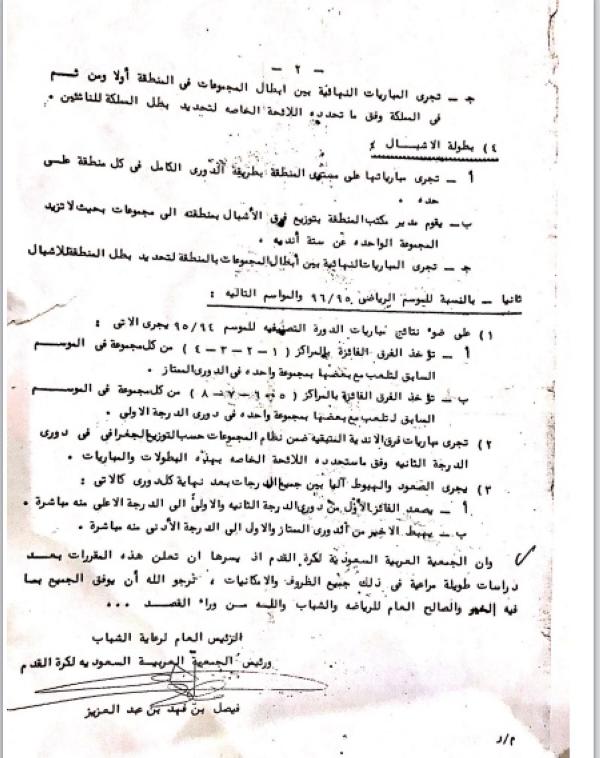 — ٢ —
ج — تجرى المباريات النهائية بين ابطال المجموعات في المنطقة أولا ومن ثم
في المملكة وفق ما تحدده اللائحة الخاصه لتحديد بطل المملكة للناشئين .
٤) بطولة الاشبال :
أ — تجرى مبارياتها على مستوى المنطقة بطريقة الدورى الكامل في كل منطقة على
حده .
ب — يقوم مدير مكتب المنطقة بتوزيع فرق الأشبال بمنطقته الى مجموعات بحيث لاتزيد
المجموعة الواحده عن ستة أنديه .
ج — تجرى المباريات النهائية بين أبطال المجموعات بالمنطقة لتحديد بطل المنطقة للاشبال
ثانيا — بالنسبة للموسم الرياضى ٩٦/٩٥ والمواسم التاليه :
١) على ضوء نتائج مباريات الدورة التصنيفيه للموسم ٩٥/٩٤ يجرى الاتى :
أ — تؤخذ الفرق الفائزة بالمراكز ( ١ – ٢ – ٣ – ٤ ) من كل مجموعة في الموسم
السابق لتلعب مع بعضها بمجموعة واحده في الدورى الممتاز .
ب — تؤخذ الفرق الفائزة بالمراكز ( ٥ – ٦ – ٧ – ٨ ) من كل مجموعة في الموسم
السابق لتلعب مع بعضها بمجموعة واحده في دورى الدرجة الاولى .
٢) تجرى مباريات فرق الاندية المتبقيه ضمن نظام المجموعات حسب التوزيع الجغرافى في دورى
الدرجة الثانيه وفق ماستحدده اللائحة الخاصه بهذه البطولات والمباريات .
٣) يجرى الصعود والهبوط آليا بين جميع الدرجات بعد نهاية كل دورى كالاتى :
أ — يصعد الفائز الأول من دورى الدرجة الثانيه والاولى الى الدرجة الاعلى منه مباشرة .
ب — يهبط الاخير من الدورى الممتاز والاول الى الدرجة الأدنى منه مباشرة .
وان الجمعية العربية السعودية لكرة القدم اذ يسرها ان تعلن هذه المقررات بعد
دراسات طويلة مراعية في ذلك جميع الظروف والامكانيات ، نرجو الله أن يوفق الجميع بما
فيه الخير والصالح العام للرياضه والشباب والله من وراء القصد ...
الرئيس العام لرعاية الشباب
ورئيس الجمعية العربية السعوديه لكرة القدم
فيصل بن فهد بن عبد العزيز
م/د